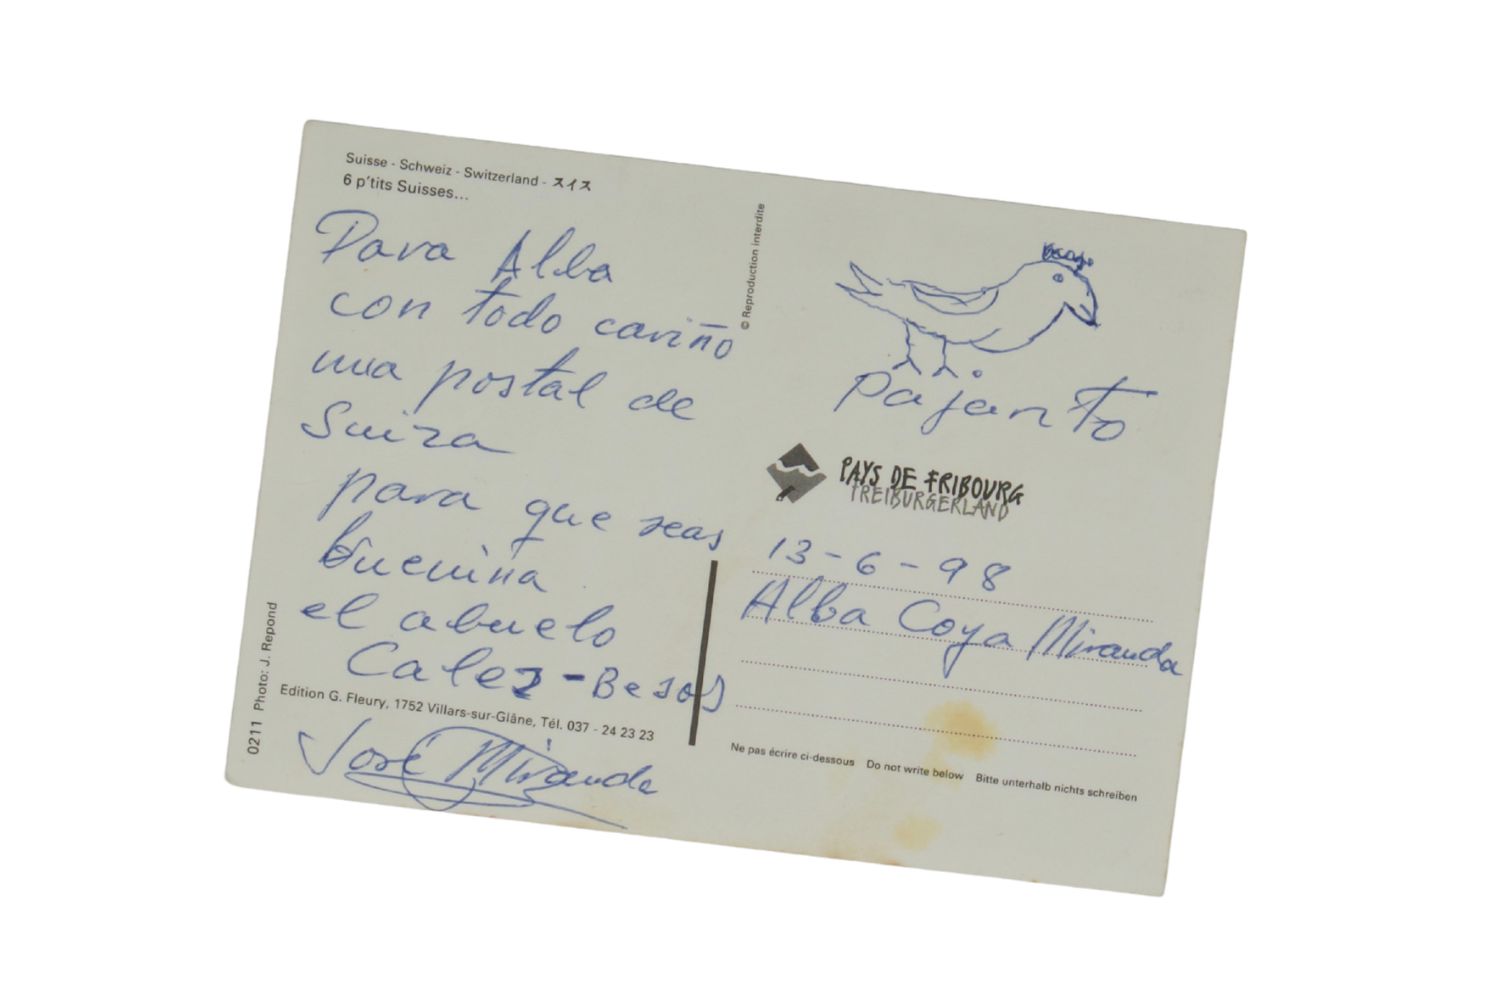 Suisse - Schweiz - Switzerland - スイス
6 p'tits Suisses...
Para Alba
con todo cariño
una postal de
Suiza
para que seas
buenina
el abuelo
Calez - Besos
José Miranda
Edition G. Fleury, 1752 Villars-sur-Glâne, Tél. 037 - 24 23 23
0211 Photo: J. Repond
© Reproduction interdite
pajarito
PAYS DE FRIBOURG
FREIBURGERLAND
13-6-98
Alba Coya Miranda
Ne pas écrire ci-dessous Do not write below Bitte unterhalb nichts schreiben